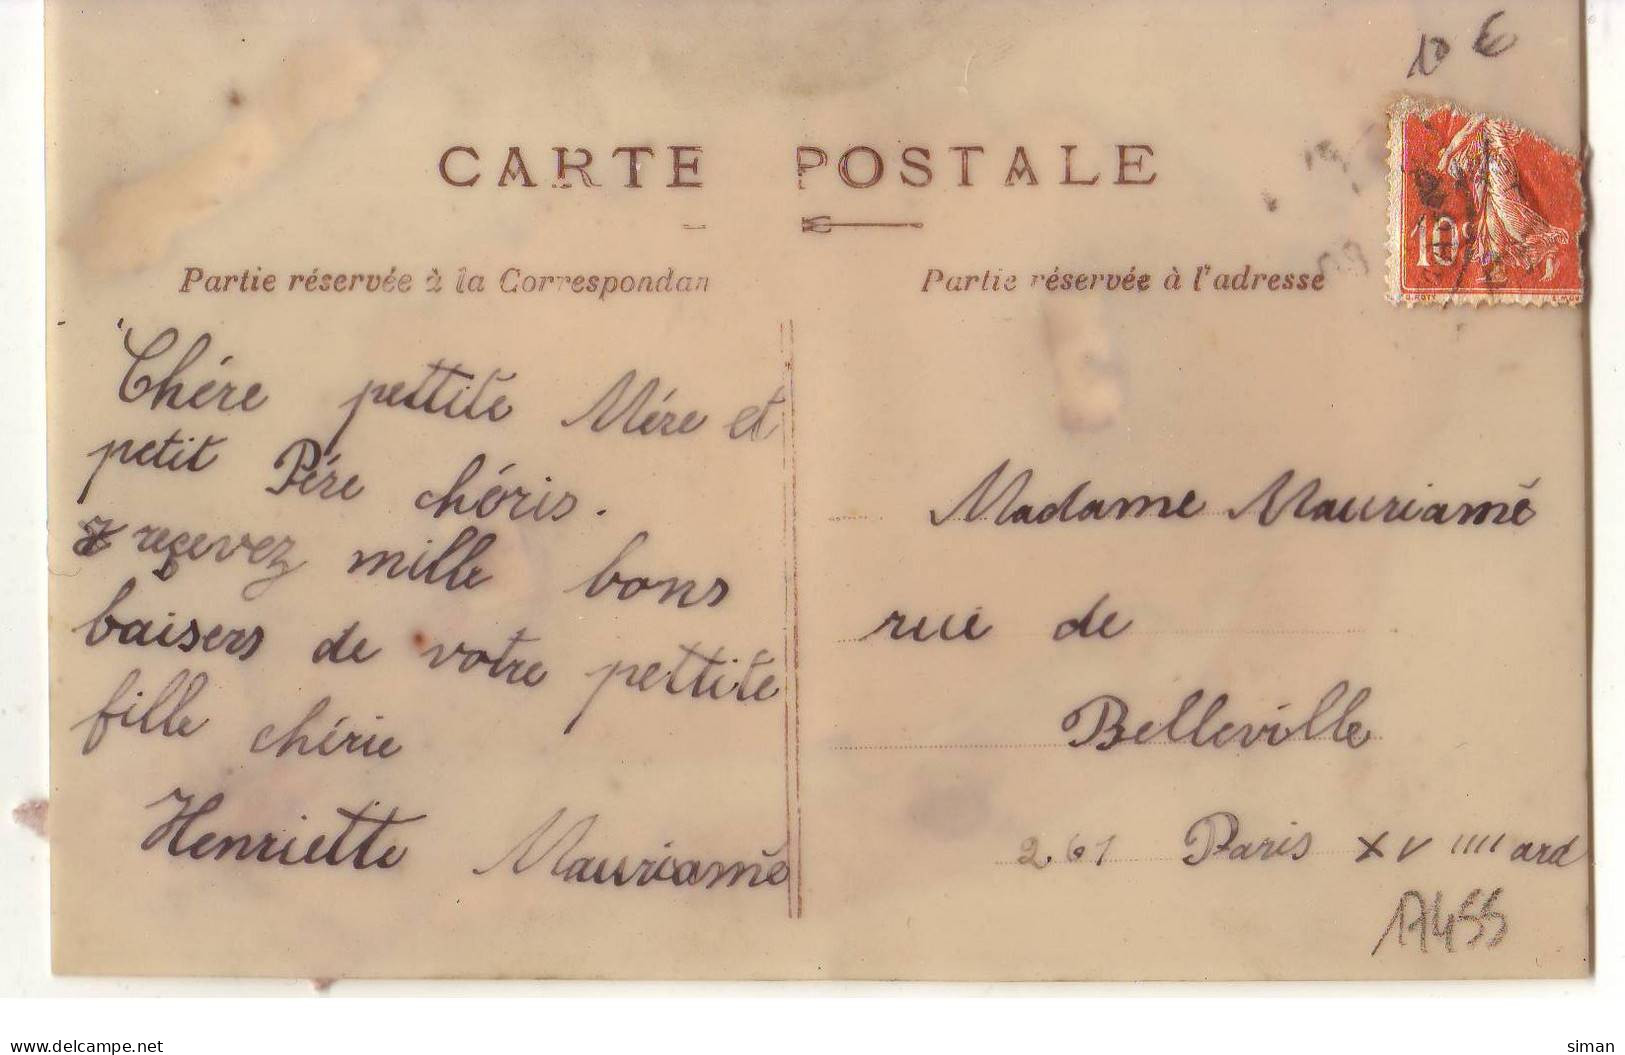 10 €
CARTE POSTALE
Partie réservée à la Correspondan
Partie réservée à l'adresse
10c
Chére pettite Mére et
petit Pére chéris.
recevez mille bons
baisers de votre pettite
fille chérie
Henriette Mauriamé
Madame Mauriamé
rue de
Belleville
261 Paris XV IIII ard
17455
www.delcampe.net
siman